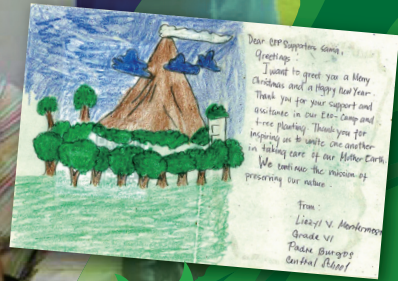 Dear CFP Supporters sama,
Greetings
I want to greet you a Merry
Christmas and a Happy New Year.
Thank you for your support and
assitance in our Eco-Camp and
tree planting. Thank you for
inspiring us to unite one another
in taking care of our Mother Earth.
We continue the mission of
preserving our nature.
From:
Liezyl V.
Grade VI
Padre Burgos
Central School